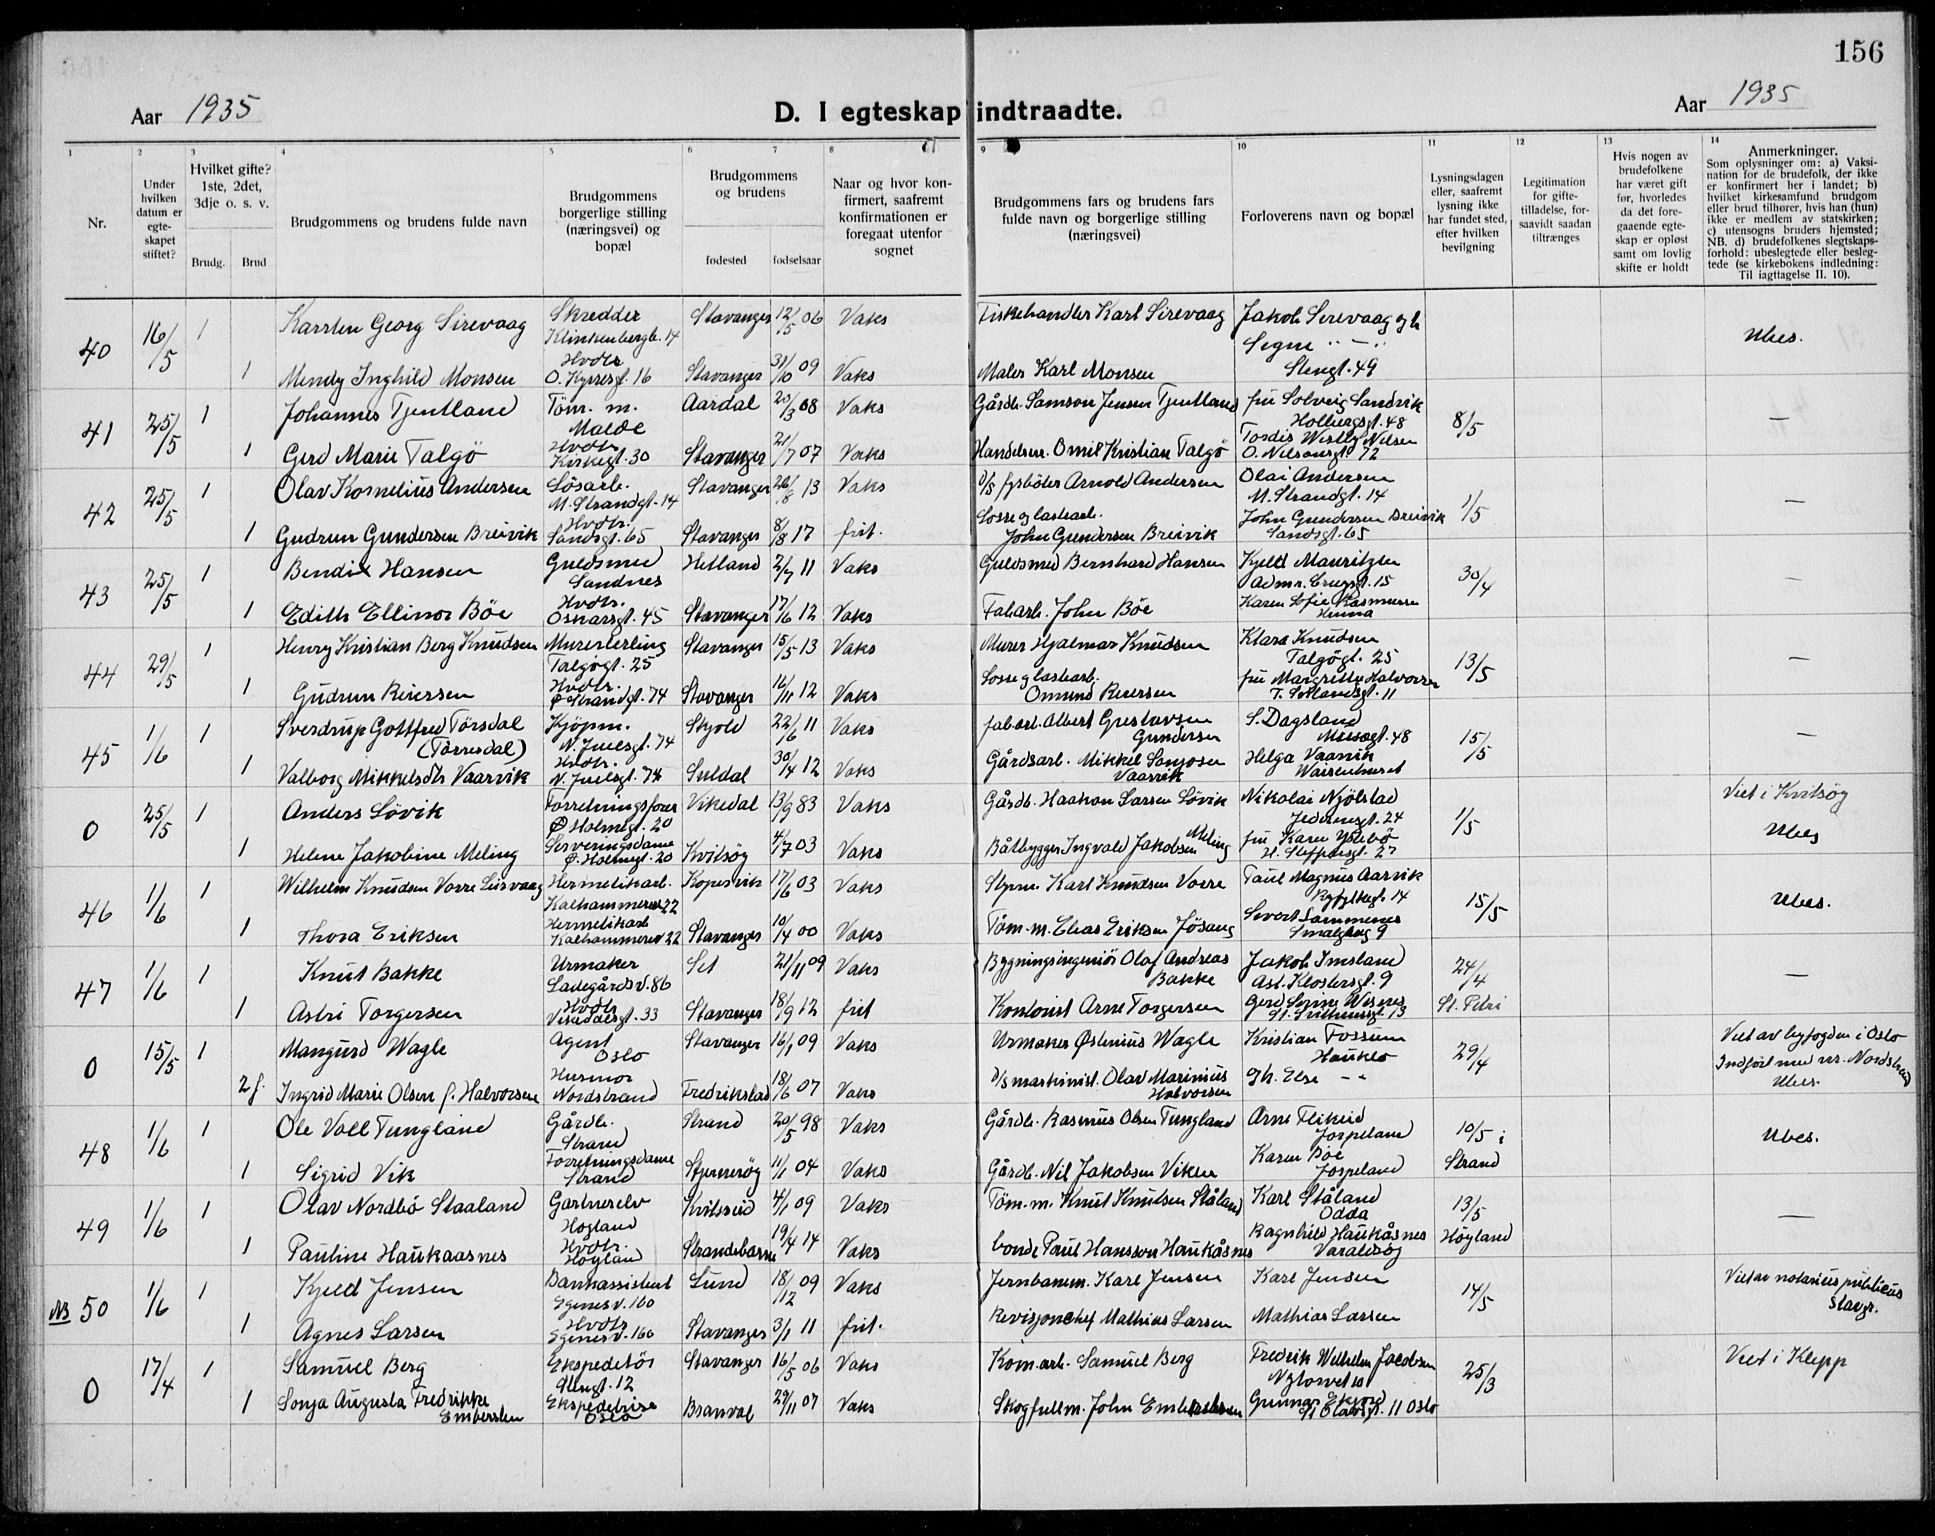 156
Aar 1935
D. I egteskap indtraadte.
Aar 1935
1 2 3 4 5 6 7 8 9 10 11 12 13 14
Nr.
Under hvilken datum er egte-skapet stiftet?
Hvilket gifte? 1ste, 2det, 3dje o. s. v.
Brudg. Brud
Brudgommens og brudens fulde navn
Brudgommens borgerlige stilling (næringsvei) og bopæl
Brudgommens og brudens
fødested fødselsaar
Naar og hvor kon-firmert, saafremt konfirmationen er foregaat utenfor sognet
Brudgommens fars og brudens fars fulde navn og borgerlige stilling (næringsvei)
Forloverens navn og bopæl
Lysningsdagen eller, saafremt lysning ikke har fundet sted, efter hvilken bevilgning
Legitimation for gifte-tilladelse, for-saavidt saadan tiltrænges
Hvis nogen av brudefolkene har været gift før, hvorledes da det fore-gaaende egte-skap er opløst samt om lovlig skifte er holdt
Anmerkninger.
Som oplysninger om: a) Vaksi-nation for de brudefolk, der ikke er konfirmert her i landet; b) hvilket kirkesamfund brudgom eller brud tilhører, hvis han (hun) ikke er medlem av statskirken; c) utensogns bruders hjemsted; NB. d) brudefolkenes slegtskaps-forhold: ubeslegtede eller besleg-tede (se kirkebokens indledning: Til iagttagelse II. 10).
40 16/5 1 Karsten Georg Sirevaag Skredder Klinkenbergb. 14 Stavanger 12/5 06 Vaks Fiskehandler Karl Sirevaag Jakob Sirevaag og h Signe " — " Ubes.
1 Mendy Inghild Monsen Hvdtr. O. Kyrresgt. 16 Stavanger 31/10 09 Vaks Maler Karl Monsen Stengt. 49
41 25/5 1 Johannes Tjentland Töm. m. Malde Aardal 20/3 08 Vaks Gårdb. Samson Jensen Tjentland fru Solveig Sandvik Holbergsgt. 48 8/5 —
1 Gerd Marie Talgö Hvdtr. Kirkegt. 30 Stavanger 21/7 07 Vaks Handelsrr. Omil Kristian Talgö Tordis Westby Nilsen O. Nilsensgt 72
42 25/5 1 Olav Kornelius Andersen Lösarb. M. Strandgt. 14 Stavanger 26/8 13 Vaks D/S fyrböter Arnold Andersen Olai Andersen M. Strandgt. 14 1/5 —
1 Gudrun Gundersen Breivik Hvdtr. Sandsgt. 65 Stavanger 8/8 17 frit. Losse og lastearb. John Gundersen Breivik John Gundersen Breivik Sandsgt. 65
43 25/5 1 Bendix Hansen Guldsmed Sandnes Hetland 2/7 11 Vaks Guldsmed Bernhard Hansen Kjeld Mauritzen Adm. Cruysgt. 15 30/4 —
1 Edith Ellinor Böe Hvdtr. Oskarsgt. 45 Stavanger 17/6 12 Vaks Fabarb. John Böe Karen Sofie Rasmussen Hinna
44 29/5 1 Henry Kristian Berg Knudsen Murerlerling Talgögt. 25 Stavanger 15/5 13 Vaks Murer Hjalmar Knudsen Klara Knudsen Talgögt. 25 13/5 —
1 Gudrun Reiersen Hvdtr. Ø Strandgt. 74 Stavanger 16/11 12 Vaks Losse og lastearb. Omund Reiersen fru Margrethe Halvorsen
45 1/6 1 Sverdrup Gottfred Törsdal (Törresdal) Kjöpm. N. Juelsgt. 74 Skjold 22/6 11 Vaks fabarb. Albert Gustavsen Gundersen S. Dagsland 15/5 —
1 Valborg Mikkelsdtr Vaarvik Hvdtr. N. Juelsgt. 74 Suldal 30/4 12 Vaks Gårdsarb. Mikkel Vaarvik Helga Vaarvik Waisenhuset
0 25/5 1 Anders Lövik Forretningsförer Ø Holmegt. 20 Vikedal 13/9 83 Vaks Gårdb. Haakon Larsen Lövik Nikolai Njölstad Jederengt. 24 1/5 Viet i Kvitsöy
1 Helene Jakobine Meling Serveringsdame Ø. Holmegt. 20 Kvitsöy 4/7 03 Vaks Båtbygger Ingvald Jakobsen Meling fru Karen Ydebö H. Steffensgt. 27 Ubes
46 1/6 1 Wilhelm Knudsen Vorre Leirvaag Hermetikarb. Kalhammeren 22 Kopervik 17/6 03 Vaks Styrm. Karl Knudsen Vorre Paul Magnus Aarvik Ryfylkegt. 14 15/5 Ubes.
1 Thora Eriksen Hermetikarb Kalhammerv. 22 Stavanger 10/14 00 Vaks Töm. m. Elias Eriksen Jösang Severt Sammenes Smalgang 9
47 1/6 1 Knut Bakke Urmaker Ladegårdsv. 86 Sel 21/11 09 Vaks Bygningsingeniör Olaf Andreas Bakke Jakob Imsland Ast. Klostersgt. 9 24/4 —
1 Astri Torgersen Hvdtr. Vikedalsgt. 33 Stavanger 18/9 12 frit Kontorist Arne Torgersen Gerd Serine Wesnes St. Petri
0 15/5 1 Mangurd Wagle Agent Oslo Stavanger 16/1 09 Vaks Urmaker Østenius Wagle Kristian Fossum Hauketo 29/4 Viet av byfogden i Oslo
2 f. Ingrid Marie Olsen f. Halvorsen Husmor Nordstrand Fredrikstad 18/6 07 Vaks D/S maskinist. Olav Marinius Halvorsen gh. Else — Indført med nr. Nordstrand Ubes.
48 1/6 1 Ole Voll Tungland Gårdb. Strand Strand 20/5 98 Vaks Gårdb. Rasmus Olsen Tungland Arne Fliksid Jörpeland 10/5 i Ubes.
1 Sigrid Vik Forretningsdame Strand Stjerneröy 11/1 04 Vaks Gårdb. Nil Jakobsen Viken Karen Böe Jörpeland Strand
49 1/6 1 Olav Nordbö Staaland Gartnerelv Hogland Kvitseid 4/1 09 Vaks Töm. m. Knut Knutsen Ståland Karl Ståland Odda 13/5 —
1 Pauline Haukaasnes Hvdtr. Högland Strandebarm 19/4 14 Vaks bonde Paul Hansson Haukåsnes Ragnhild Haukåsnes Varaldsöy Höyland
NB 50 1/6 1 Kjeld Jensen Bankassistent Egenesv. 160 Lund 18/12 09 Vaks Jernbanem. Karl Jensen Karl Jensen 14/5 Viet av notarius publicus Stavgr.
1 Agnes Larsen Hvdtr Egenesv. 160 Stavanger 3/1 11 frit. Revisjonchef Mathias Larsen Mathias Larsen
0 17/4 1 Samuel Berg Ekspeditör Alengt. 12 Stavanger 16/5 06 Vaks Kom. arb. Samuel Berg Fredrik Wilhelm Jacobsen Nytorvet 10 25/3 Viet i Klepp
1 Sonja Augusta Fredrikke Embersten Ekspeditrise Oslo Branval 29/11 07 Vaks Skogfullm. John Embersten Gunnar St Olavsgt. 11 Oslo